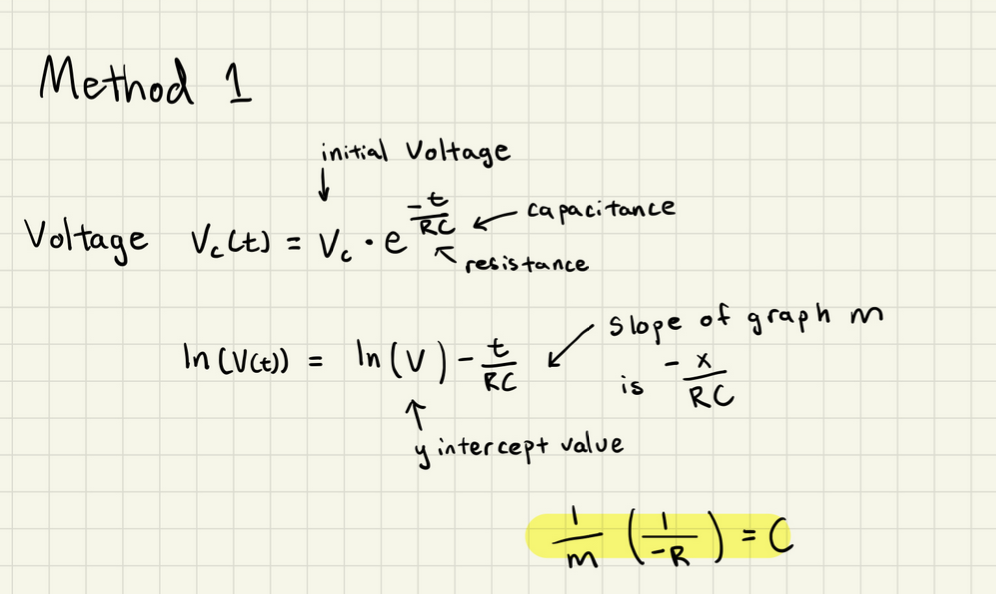 Method 1
initial Voltage
↓
Voltage V_c(t) = V_c · e^(-t/RC) ← capacitance
↖ resistance
ln(V(t)) = ln(V) - t/RC ↙ slope of graph m
is - x/RC
↑
y intercept value
1/m (1/-R) = C